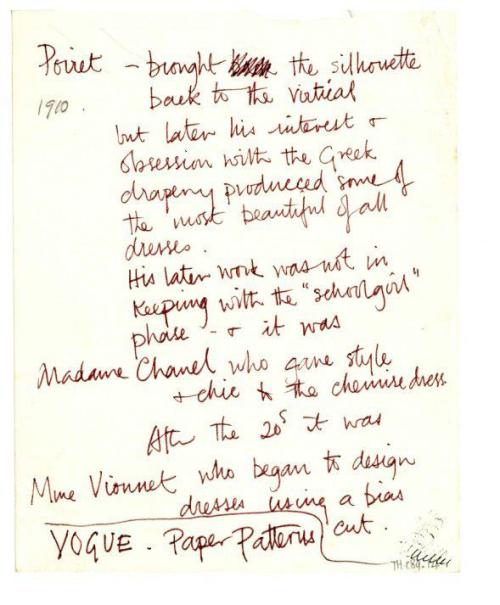 Poiret - brought the silhouette
1910.
back to the virtical
but later his interest &
obsession with the Greek
drapery produced some of
the most beautiful of all
dresses.
His later work was not in
keeping with the "schoolgirl"
phase - & it was
Madame Chanel who gave style
& chic to the chemise dress
After the 20s it was
Mme Vionnet who began to design
dresses using a bias
cut.
VOGUE. Paper Patterns